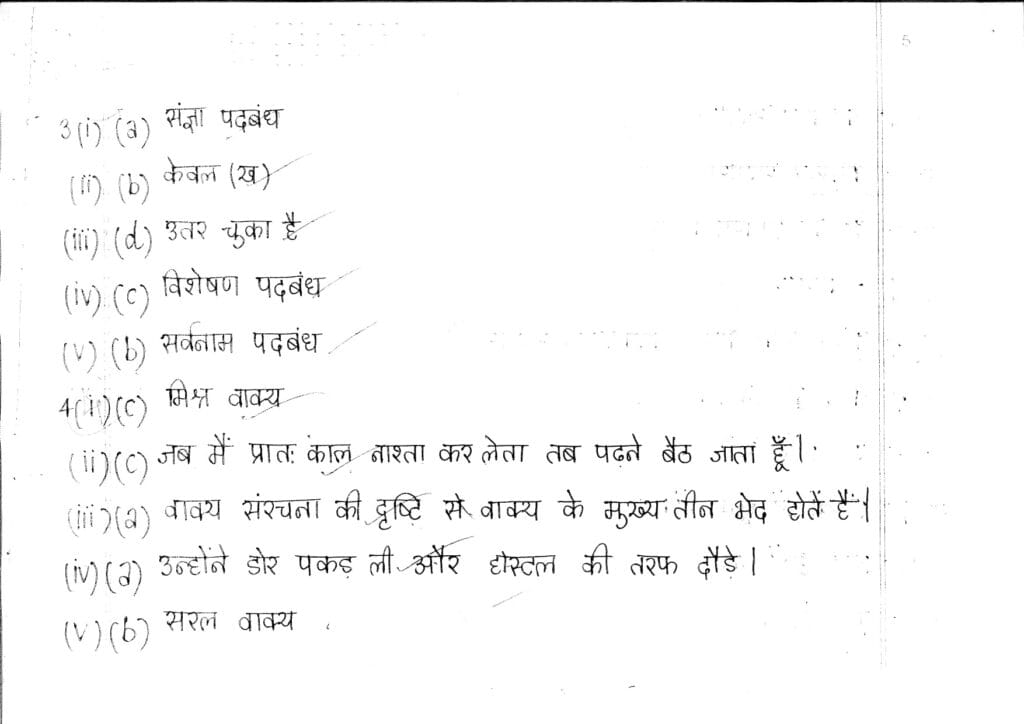 5
3(i) (a) संज्ञा पदबंध
(ii) (b) केवल (ख)
(iii) (d) उतर चुका है
(iv) (c) विशेषण पदबंध
(v) (b) सर्वनाम पदबंध
4(i) (c) मिश्र वाक्य
(ii) (c) जब मैं प्रातः काल नाश्ता कर लेता तब पढ़ने बैठ जाता हूँ।
(iii) (a) वाक्य संरचना की दृष्टि से वाक्य के मुख्य तीन भेद होते हैं।
(iv) (a) उन्होंने डोर पकड़ ली और होस्टल की तरफ दौड़े।
(v) (b) सरल वाक्य .